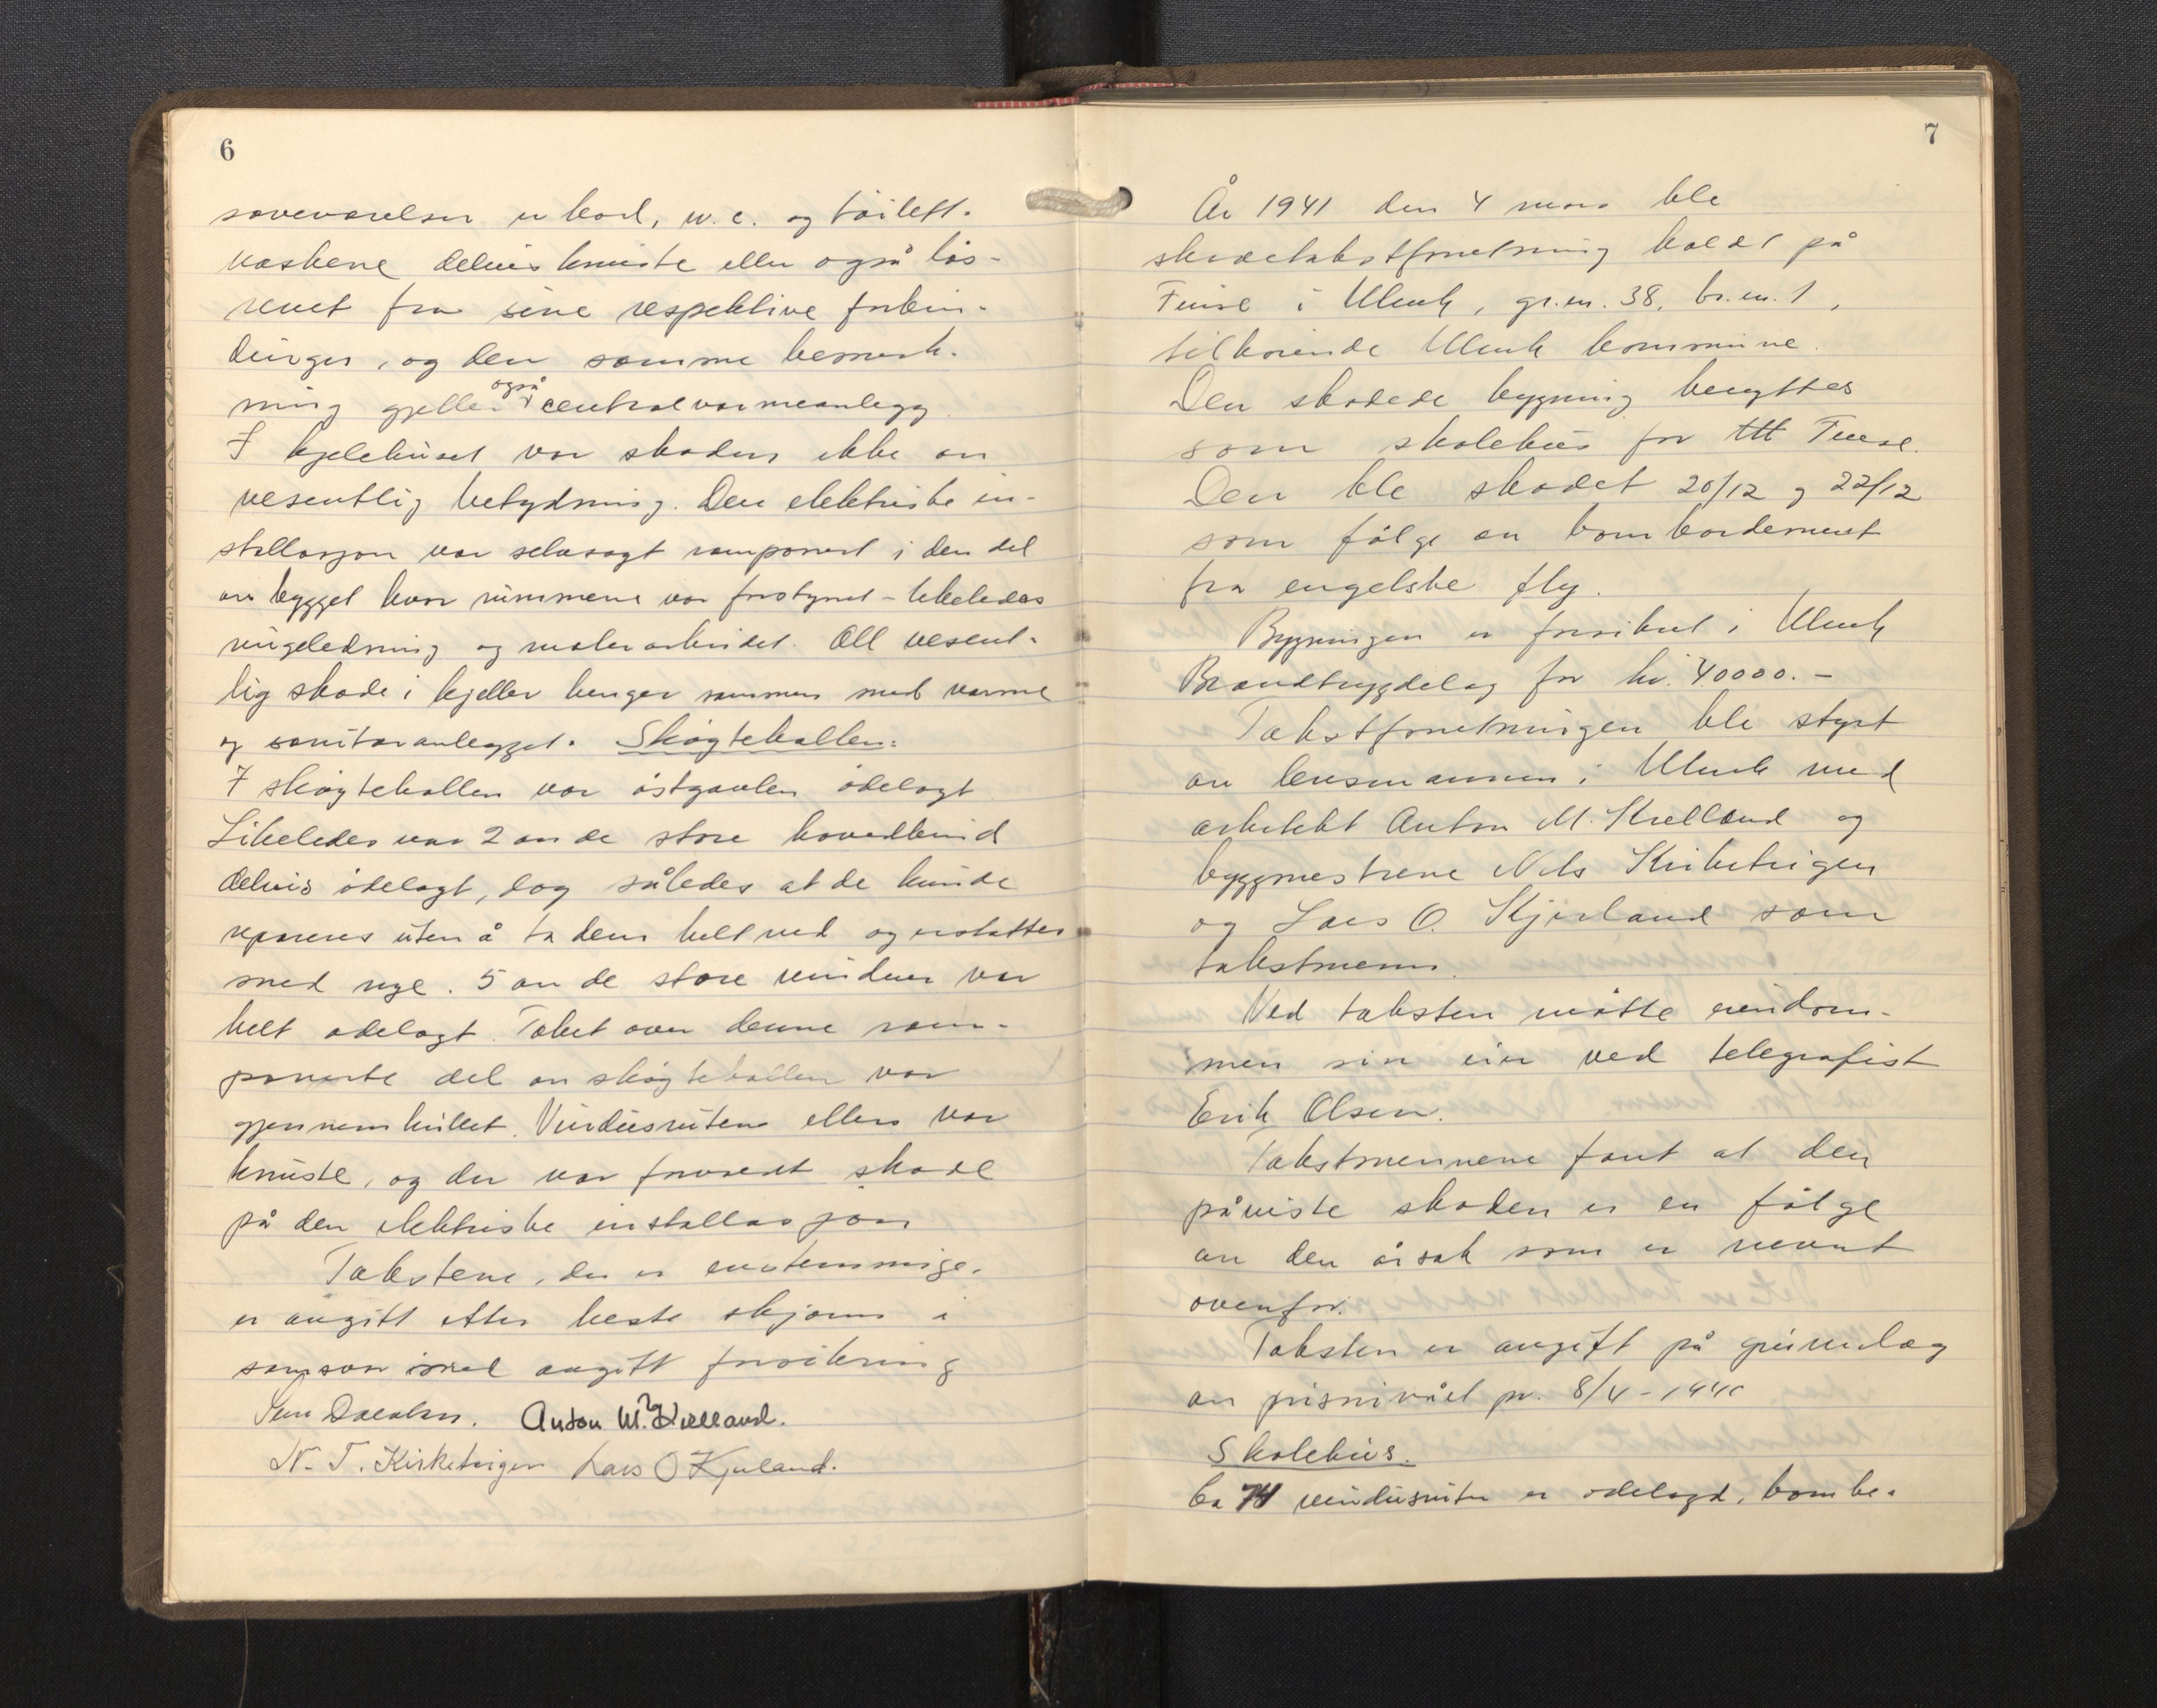 6
soveværelser er bord, w.c. og toilett-
vaskene delvis knuste eller også løs-
revet fra sine respektive forbin-
dinger, og den samme bemerk-
ning gjeller også centralvarmeanlegg.
I kjelehuset var skaden ikke av
vesentlig betydning. Den elektriske in-
stallasjon var selvsagt ramponert i den del
av bygget hvor rummene var forstyrret - likeledes
ringeledning og malerarbeidet. All vesent-
lig skade i kjeller henger sammen med varme
og sanitæranlegget. Skøytehallen:
I skøytehallen var østgavlen ødelagt
Likeledes var 2 av de store hovedbind
delvis ødelagt, dog således at de kunde
repareres uten å ta dem helt ned og erstattes
med nye. 5 av de store vinduer var
helt ødelagt. Taket over denne ram-
ponerte del av skøytehallen var
gjennemhullet. Vindusrutene ellers var
knuste, og der var forøvret skade
på den elektriske installasjon
Takstene, der er enstemmige,
er angitt etter beste skjønn i
samsvar med angitt forsikring
Anton M. Kielland.
N. T. Kirketeigen Lars O Kjerland.
7
År 1941 den 4 mars ble
skadetakstforretning holdt på
Finse i Ulvik, gr.nr. 38, br.nr. 1,
tilhørende Ulvik kommune.
Den skadede bygning benyttes
som skolehus for Finse.
Den ble skadet 20/12 og 22/12
som følge av bombardement
fra engelske fly.
Bygningen er forsikret i Ulvik
Brandtrygdelag for kr. 40000.-
Takstforretningen ble styrt
av lensmannen i Ulvik med
arkitekt Anton M. Kielland og
byggmestrene Nils Kirketeigen
og Lars O. Kjerland som
takstmenn.
Ved taksten møtte eiendom-
men sin eier ved telegrafist
Erik Olsen.
Takstmennene fant at den
påviste skaden er en følge
av den årsak som er nevnt
ovenfor.
Taksten er angitt på grunnlag
av prisnivået pr. 8/4 - 1940
Skolehus.
Ca 74 vindusruter er ødelagd, bombe-